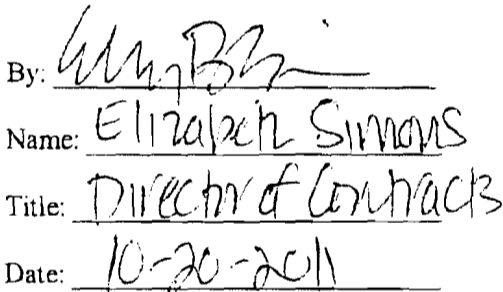 By:
Name: Elizabeth Simons
Title: Director of Contracts
Date: 10-20-2011